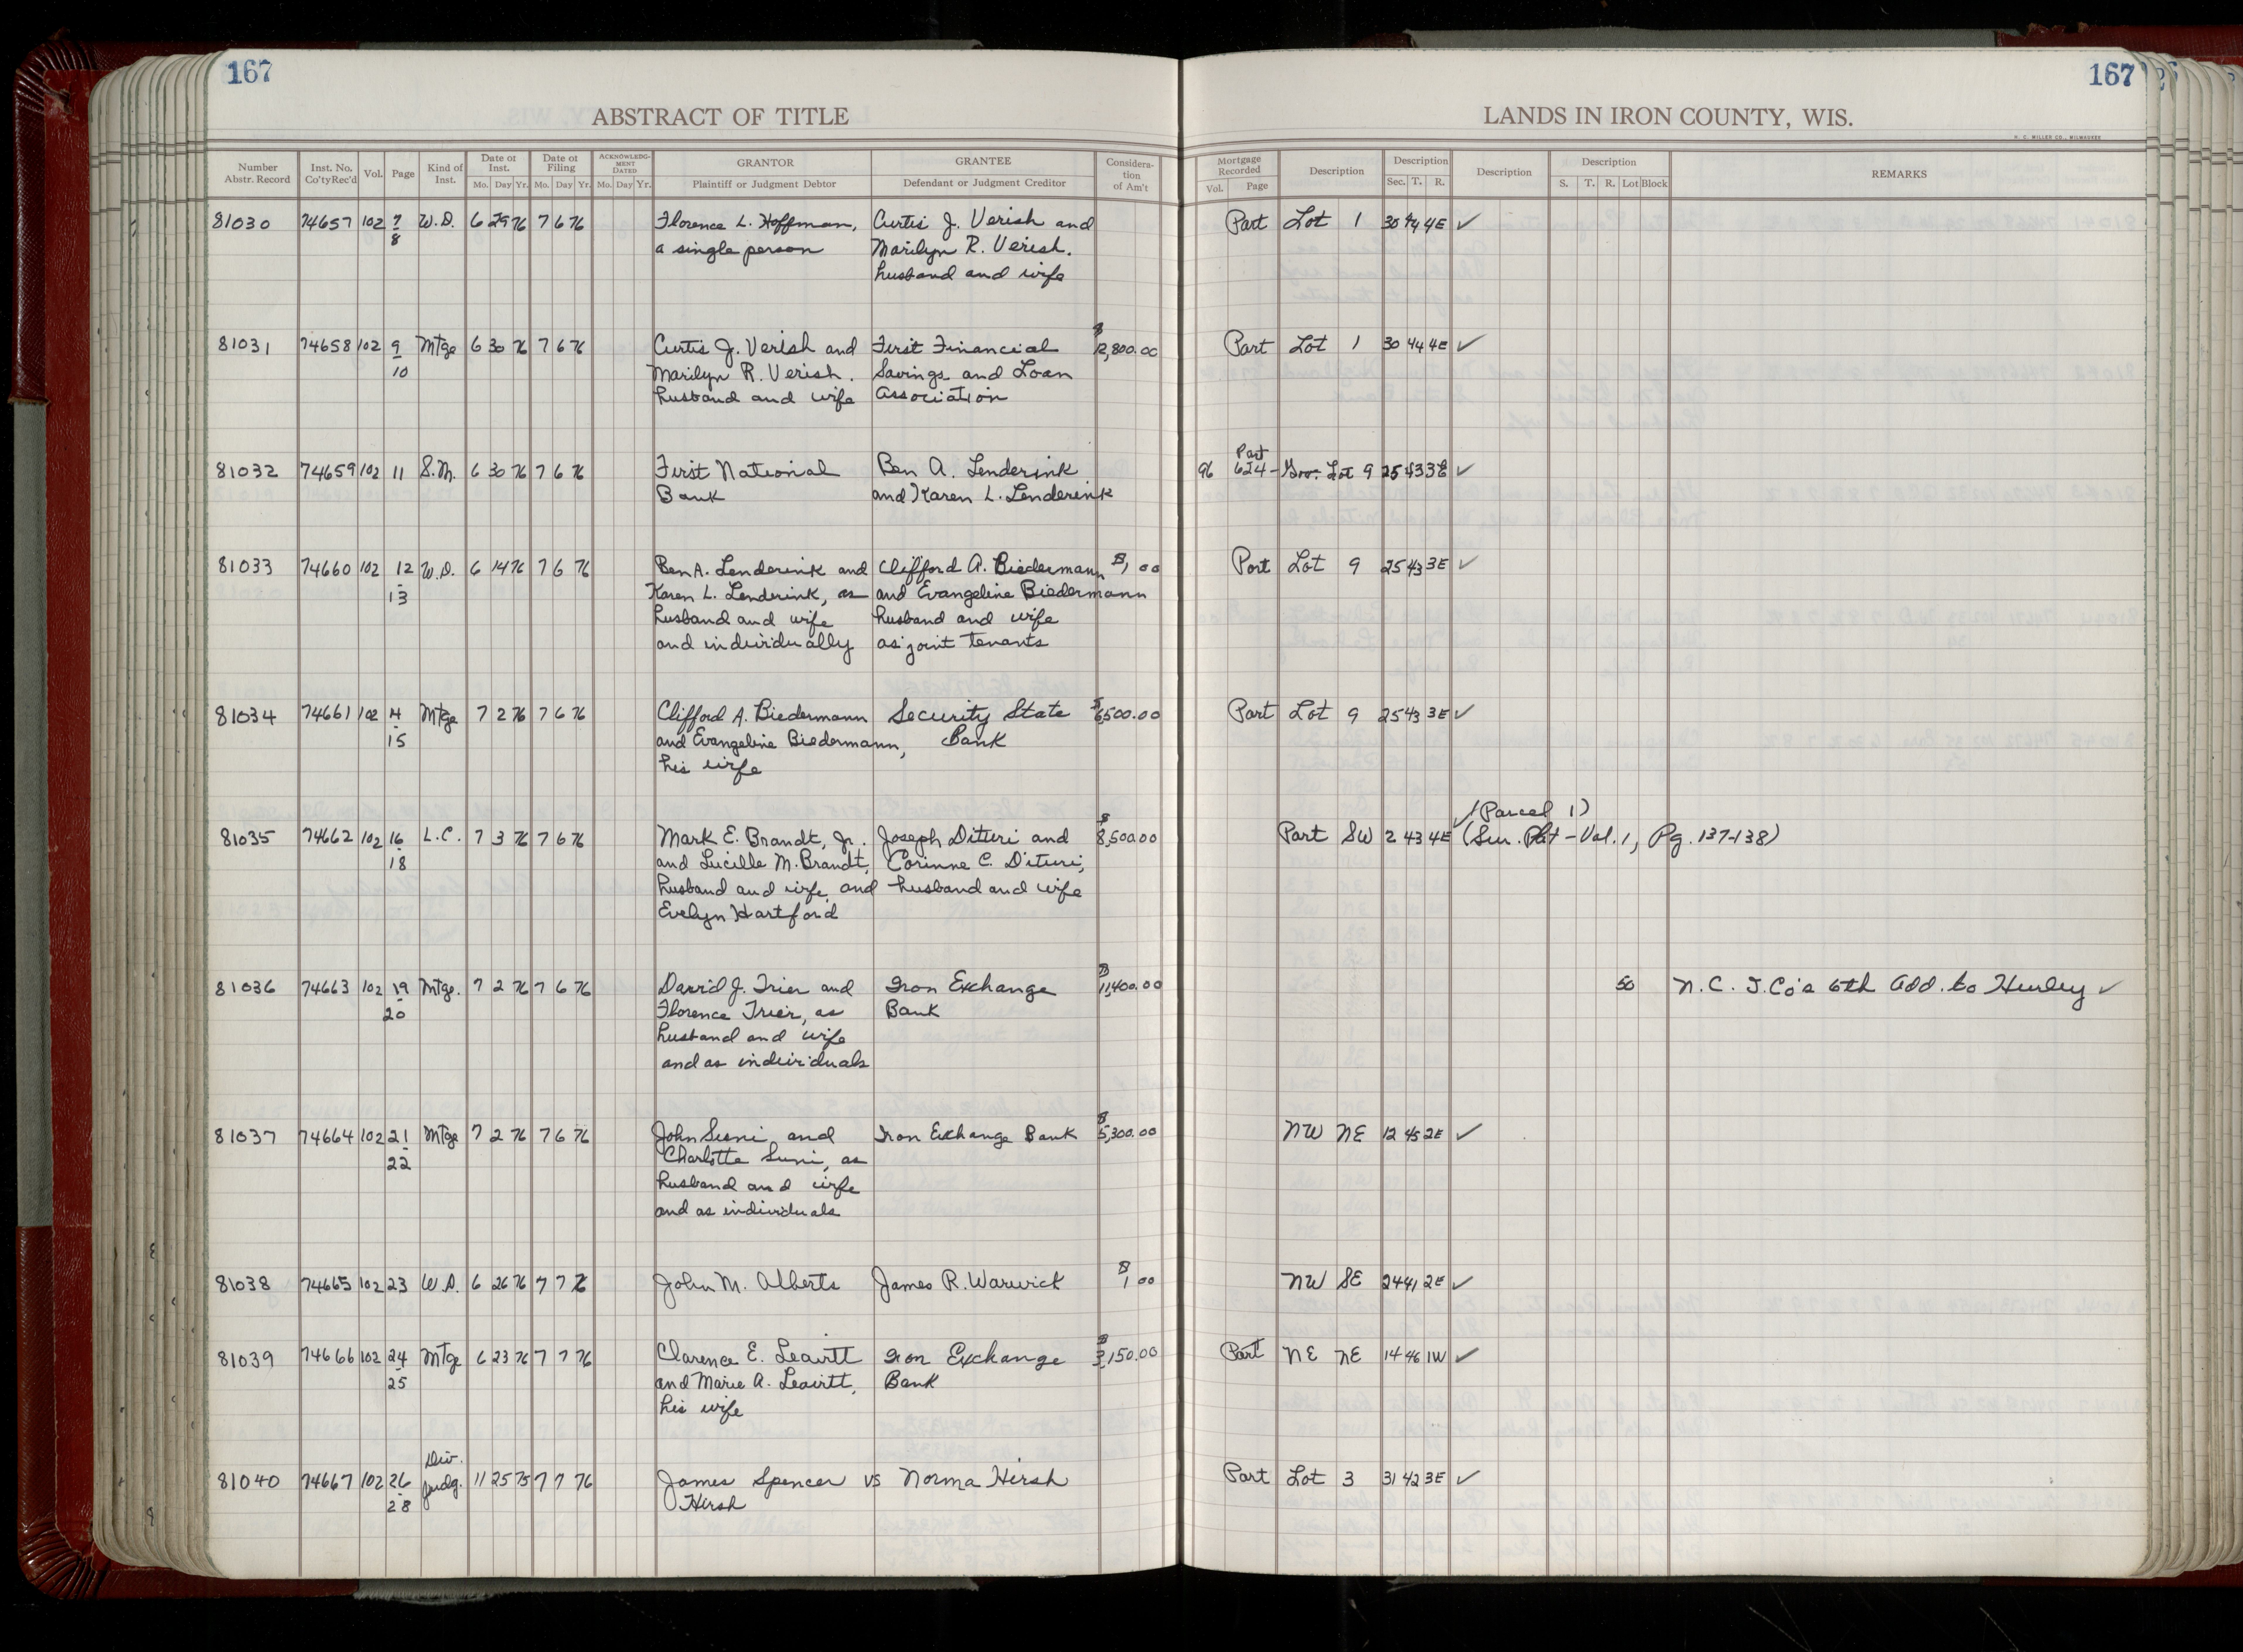 167
167
ABSTRACT OF TITLE
LANDS IN IRON COUNTY, WIS.
H. C. MILLER CO., MILWAUKEE
Number Abstr. Record | Inst. No. Co'ty Rec'd | Vol. | Page | Kind of Inst. | Date of Inst. Mo. Day Yr. | Date of Filing Mo. Day Yr. | ACKNOWLEDGMENT DATED Mo. Day Yr. | GRANTOR Plaintiff or Judgment Debtor | GRANTEE Defendant or Judgment Creditor | Consideration of Am't | Mortgage Recorded Vol. Page | Description | Description Sec. T. R. | Description | Description S. T. R. Lot Block | REMARKS
81030 74657 102 7 W.D. 6 29 76 7 6 76 Florence L. Hoffman, Curtis J. Verish and Part Lot 1 30 44 4E ✓
8 a single person Marilyn R. Verish,
husband and wife
81031 74658 102 9 Mtge 6 30 76 7 6 76 Curtis J. Verish and First Financial $12,800.00 Part Lot 1 30 44 4E ✓
10 Marilyn R. Verish, Savings and Loan
husband and wife Association
Part
81032 74659 102 11 S.M. 6 30 76 7 6 76 First National Ben A. Lenderink 96 624 - Gov. Lot 9 25 43 3E ✓
Bank and Karen L. Lenderink
81033 74660 102 12 W.D. 6 14 76 7 6 76 Ben A. Lenderink and Clifford A. Biedermann $1.00 Part Lot 9 25 43 3E ✓
13 Karen L. Lenderink, as and Evangeline Biedermann
husband and wife husband and wife
and individually as joint tenants
81034 74661 102 14 Mtge 7 2 76 7 6 76 Clifford A. Biedermann Security State $6,500.00 Part Lot 9 25 43 3E ✓
15 and Evangeline Biedermann, Bank
his wife
✓ (Parcel 1)
81035 74662 102 16 L.C. 7 3 76 7 6 76 Mark E. Brandt, Jr. Joseph Dituri and $8,500.00 Part SW 2 43 4E (Sur. Plat - Vol. 1, Pg. 137-138)
18 and Lucille M. Brandt, Corinne C. Dituri,
husband and wife, and husband and wife
Evelyn Hartford
81036 74663 102 19 Mtge. 7 2 76 7 6 76 David J. Trier and Iron Exchange $11,400.00 50 N. C. I. Co's 6th Add. to Hurley ✓
20 Florence Trier, as Bank
husband and wife
and as individuals
81037 74664 102 21 Mtge 7 2 76 7 6 76 John Suni and Iron Exchange Bank $5,300.00 NW NE 12 45 2E ✓
22 Charlotte Suni, as
husband and wife
and as individuals
81038 74665 102 23 W.D. 6 26 76 7 7 76 John M. Alberts James R. Warwick $1.00 NW SE 24 41 2E ✓
81039 74666 102 24 Mtge 6 23 76 7 7 76 Clarence E. Leavitt Iron Exchange $3,150.00 Part NE NE 14 46 1W ✓
25 and Marie A. Leavitt, Bank
his wife
Div.
81040 74667 102 26 Judg. 11 25 75 7 7 76 James Spencer vs Norma Hirsh Part Lot 3 31 42 3E ✓
28 Hirsh